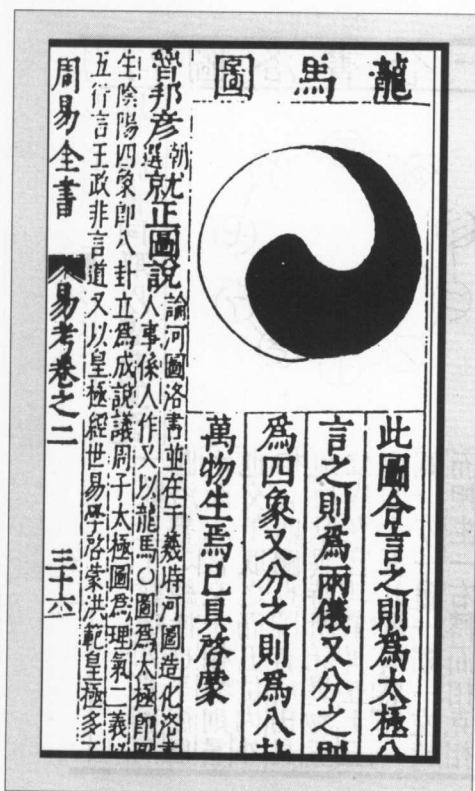 龍馬圖
此圖合言之則爲太極
言之則爲兩儀又分之則
爲四象又分之則爲八卦
萬物生焉已具啓蒙
曾邦彥朝選就正圖說論河圖洛書並在于羲時河圖造化洛書
人事係人作又以龍馬〇圖爲太極即圖
生陰陽四象即八卦立爲成說議周子太極圖爲理氣二義以
五行言王政非言道又以皇極經世易學啓蒙洪範皇極多
周易全書 易考卷之二 三十六